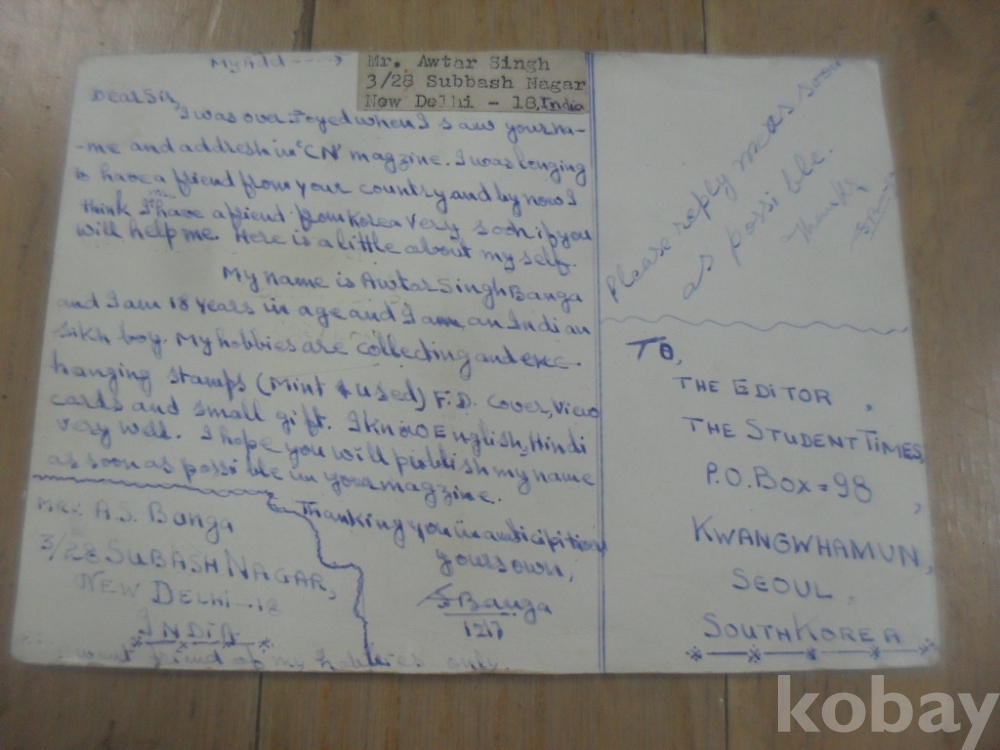 My Add ---->
Mr. Awtar Singh
3/28 Subbash Nagar
New Delhi - 18, India
Dear Sir,
I was over Joyed when I saw your na-
-me and addresh in 'CN' magzine. I was longing
to have a friend from your country and by now I
think I have a friend from Korea Very soon if you
will help me. Here is a little about my self.
My name is Awtar Singh Banga
and I am 18 years in age and I am an Indian
sikh boy. My hobbies are collecting and exc-
hanging stamps (Mint & used) F.D. cover, View
cards and small gift. I know English, Hindi
very well. I hope you will publish my name
as soon as possible in your magzine.
Thanking you in anticipition
yours own,
Banga
1217
Mr. A.S. Banga
3/28 SUBASH NAGAR,
NEW DELHI-18
INDIA
want friend of my hobbies only.
Please reply me as soon
as possible.
Thanks
TO,
THE EDITOR,
THE STUDENT TIMES,
P.O. Box = 98,
KWANGWHAMUN,
SEOUL.
SOUTH KOREA
kobay